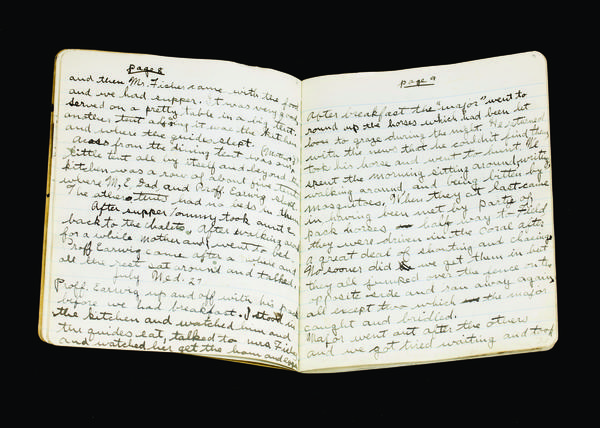 page 8
and then Mr. Fisher came with the food
and we had supper. It was very good,
served on a pretty table in a big tent,
another tent it was the kitchen
and where the guides slept.
Across from the dining tent was our
little tent all by itself and beyond the
kitchen was a row of about five tents
where M, E Dad and Proff. Earwig slept.
The other tent had no beds in them
After supper Tommy took aunt E
back to the chalets. After walking around
for a while Mother and I went to bed
Proff Earwig came after a while and
all the rest sat around and talked.
July Wed. 27
Proff. Earwig up and off with his
before we had breakfast. I stood in
the kitchen and watched him and
the guides eat, talked to Mrs Fisher
and watched her get the ham and eggs
page 9
After breakfast the "major" went to
round up the horses which had been let
loose to graze during the night. He returned
with the news that he couldn't find they
took his horse and went to hunt. We
spent the morning sitting around, writing,
walking around, and being bitten by
mosquitoes. When they at last came
in having been met by parts of
pack horses, half way to Field
they were driven in the coral after
a great deal of shouting and chasing
No sooner did we get them in but
they all jumped over the fence on the
opposite side and ran away again
all except two which the major
caught and bridled.
Major went out after the others
and we got tired waiting and